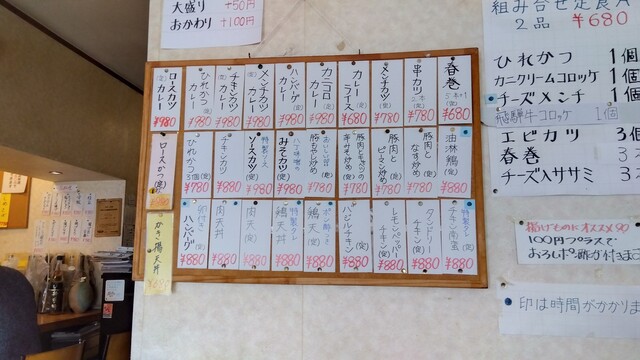 大盛り +50円
おかわり +100円
組み合せ定食A
2品 ¥680
ひれかつ 1個
カニクリームコロッケ 1個
チーズメンチ 1個
飛騨牛コロッケ 1個
エビカツ 3
春巻 3
チーズ入ササミ 3
揚げものにオススメ
100円プラスで
おろしポン酢が付きます
印は時間がかかりま
春巻(定) ¥680
串カツ(定) ¥780
メンチカツ(定) ¥780
カレーライス ¥680
カニコロカレー ¥980
ハンバーグカレー ¥980
メンチカツカレー ¥980
チキンカツカレー ¥980
ひれかつカレー ¥980
ロースカツカレー ¥980
油淋鶏(定) ¥880
豚肉となす炒め(定) ¥780
豚肉とピーマン炒め(定) ¥780
豚もやし炒め(定)
みそカツ(定) ¥880
ソースカツ(定) ¥880
チキンカツ(定) ¥880
ひれかつ3個(定) ¥780
ロースかつ(定)
特製タレ チキン南蛮(定) ¥880
タンドリーチキン(定) ¥880
レモンペッパーチキン(定) ¥880
バジルチキン(定) ¥880
ポン酢 鶏天(定) ¥880
特製タレ 鶏天丼 ¥880
肉天(定) ¥880
肉天丼 ¥880
ハンバーグ(定) ¥880
かき揚天丼